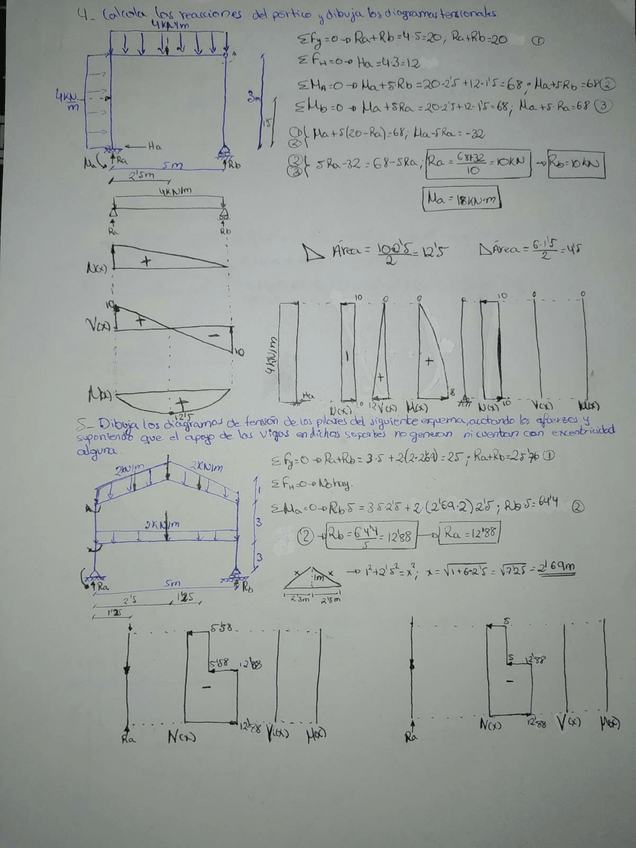 4.- Calcula las reacciones del pórtico y dibuja los diagramas tensionales
4KN/m
ΣFy=0→Ra+Rb=4·5=20, Ra+Rb=20 ①
ΣFH=0→Ha=4·3=12
4KN/m
3m
1'5
ΣMA=0→Ma+5Rb=20·2'5+12·1'5=68 · Ma+5Rb=68 ②
ΣMb=0→Ma+5Ra=20·2'5+12·1'5=68; Ma+5·Ra=68 ③
Ha
Ma
Ra
Rb
5m
2'5m
Ma+5(20-Ra)=68, Ma-5Ra=-32
5Ra-32=68-5Ra, Ra=68+32/10=10KN → Rb=10KN
4KN/m
Ma=18KN·m
Ra
Rb
Área=10·2'5/2=12'5
Área=6·1'5/2=4'5
N(x)
+
10
V(x)
+
-
10
M(x)
+
12'5
4KN/m
Ha
N(x)
10
12
V(x)
M(x)
N(x)
10
V(x)
M(x)
5.- Dibuja los diagramas de tensión de los pilares del siguiente esquema, acotando los esfuerzos y
suponiendo que el apoyo de las vigas en dichos soportes no generan ni cuentan con excentricidad
alguna.
2KN/m
2KN/m
ΣFy=0→Ra+Rb=3·5+2(2·2'69)=25; Ra+Rb=25'76 ①
ΣFH=0→No hay.
2KN/m
1
3
3
ΣMa=0→Rb5=3·5·2'5+2·(2'69·2)2'5; Rb·5=64'4 ②
② → Rb=64'4/5=12'88 → Ra=12'88
Ra
Rb
5m
2'5
1'25
1'25
x
x
1m
2'5m
2'5m
→ 1²+2'5²=x²; x=√1+6'25=√7'25=2'69m
5'38
5'88
12'88
-
12'88
Ra
N(x)
V(x)
M(x)
5
5
12'88
-
12'88
Ra
N(x)
V(x)
M(x)